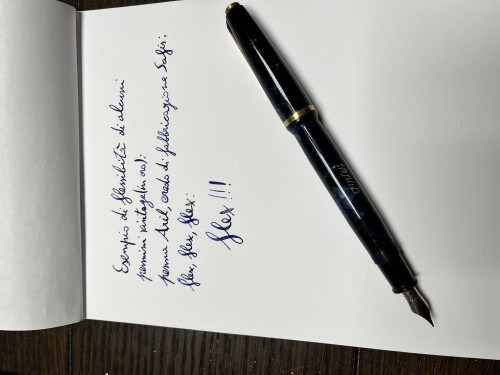 Esempio di flessibilità di alcuni
pennini vintage (in oro):
penna Aril, credo di fabbricazione Safis:
flex, flex, flex:
flex!!!